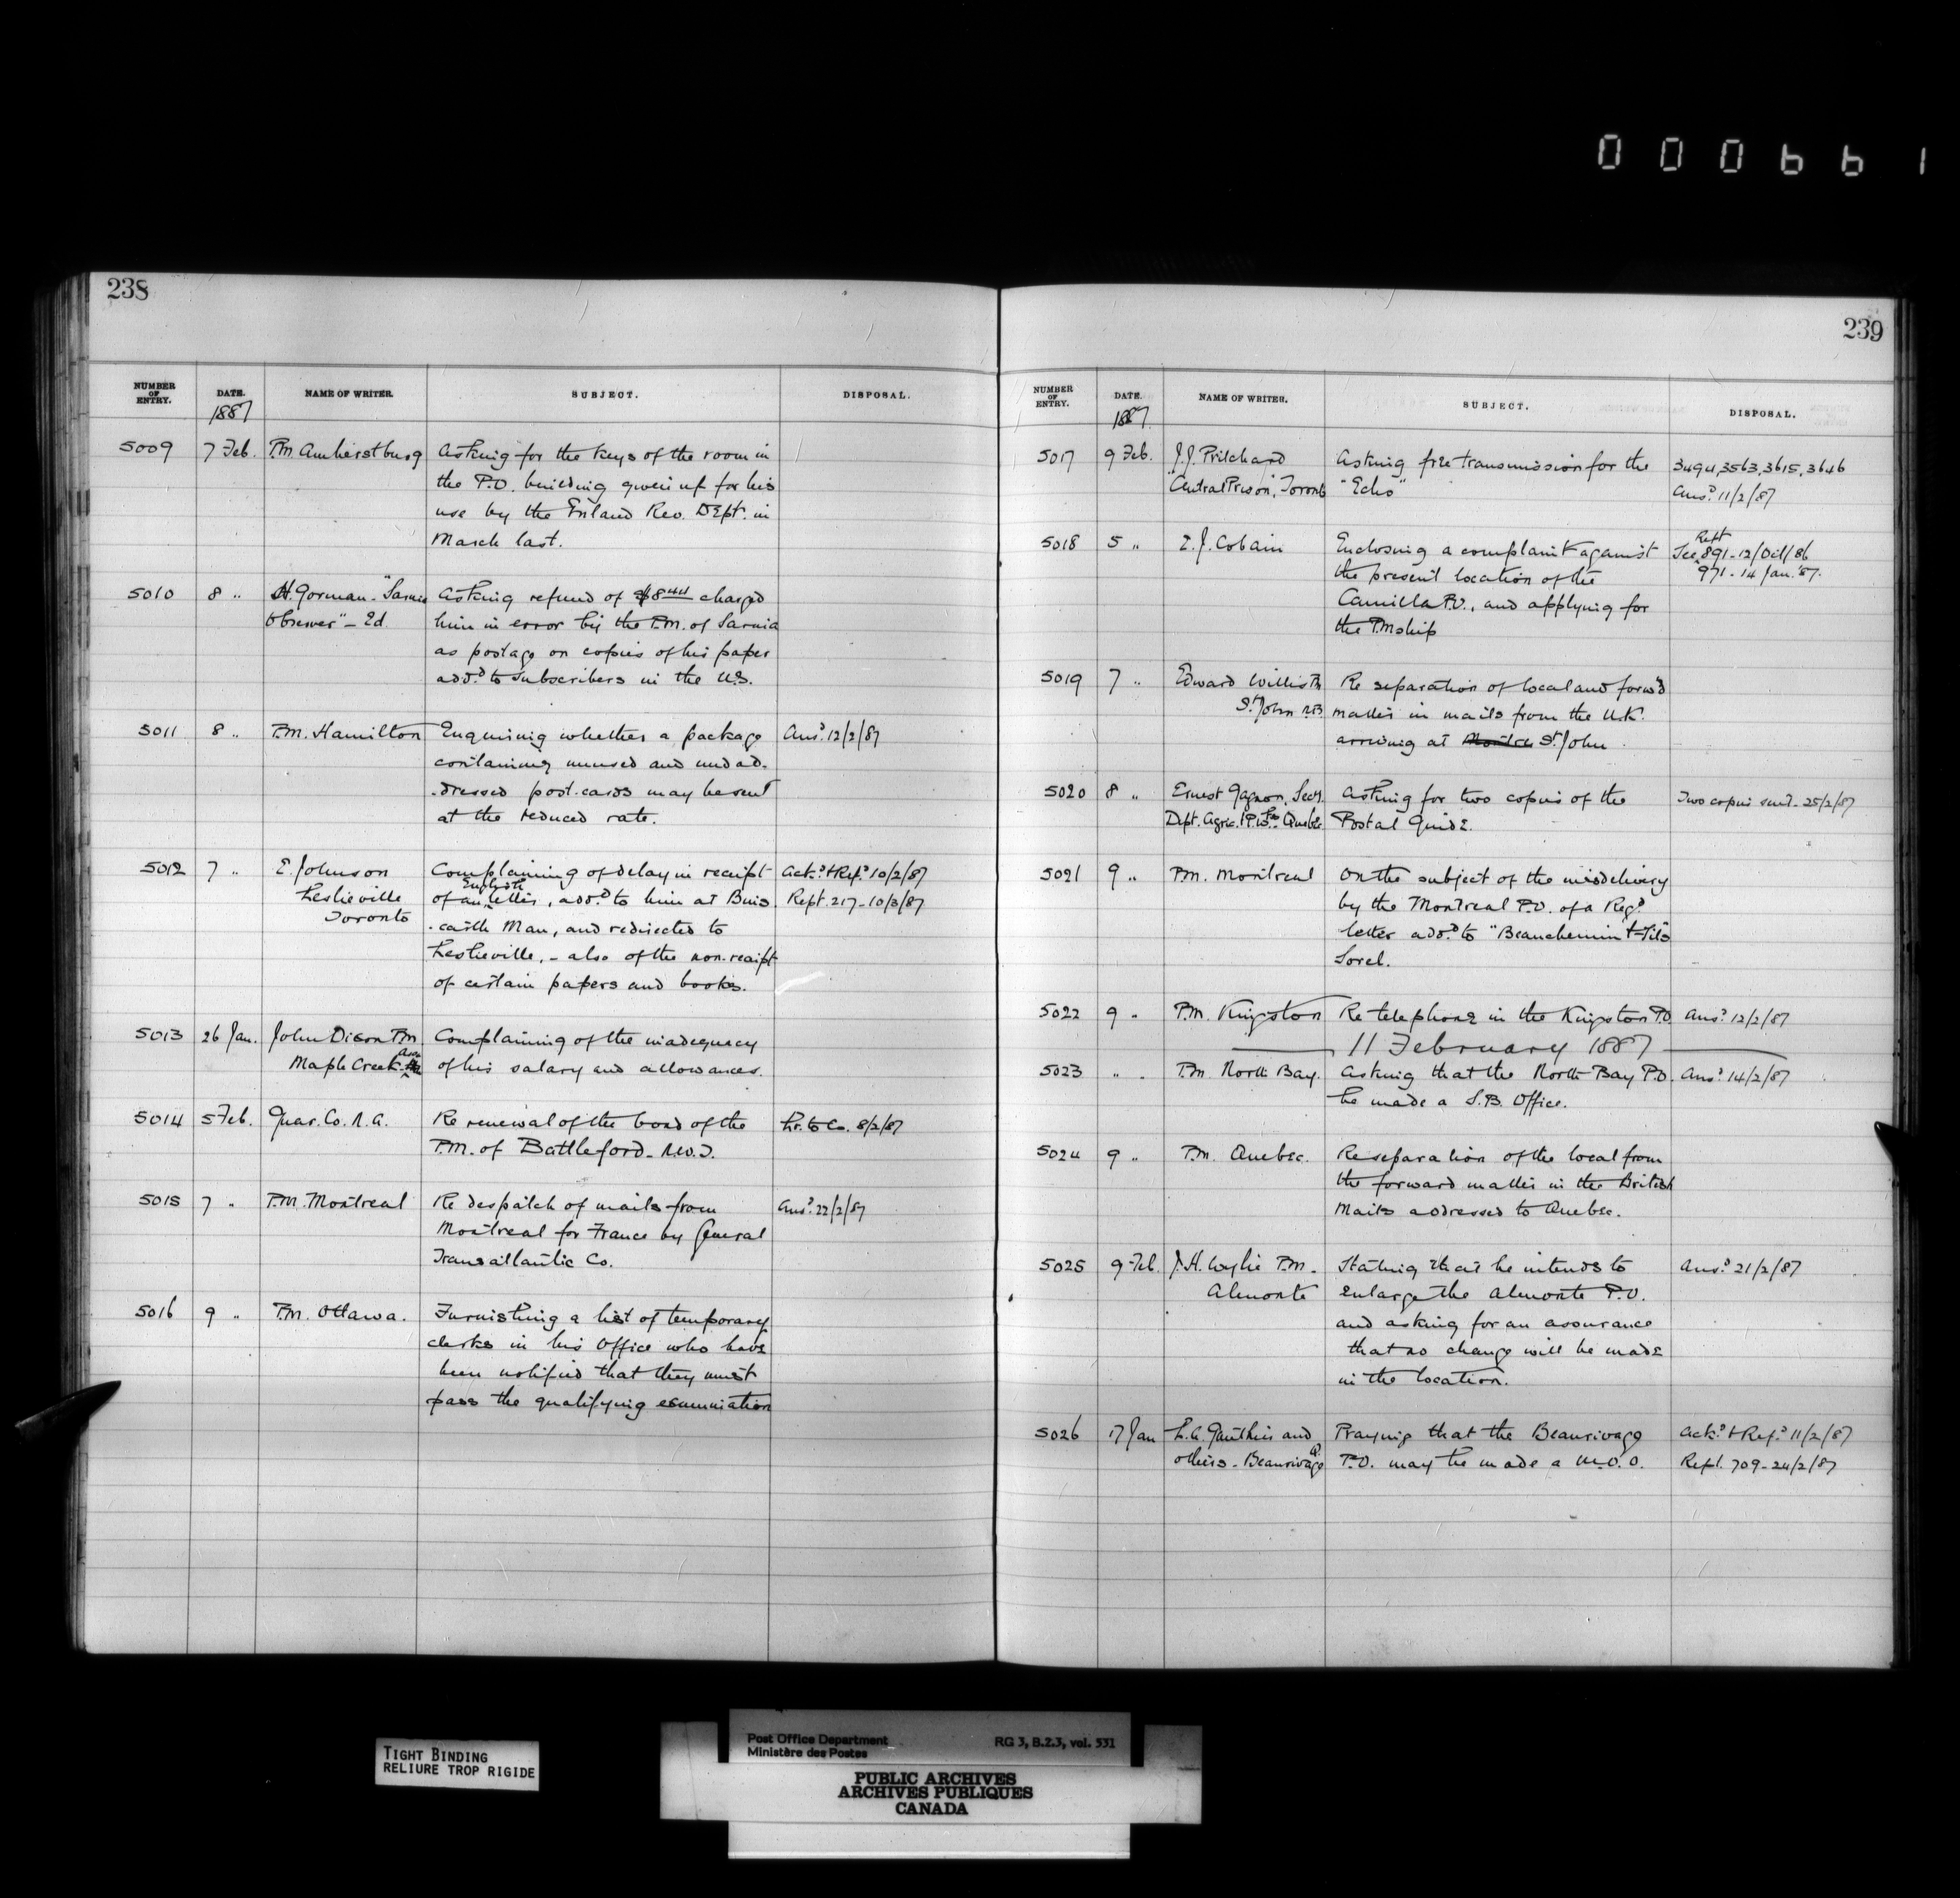 000661
238
NUMBER OF ENTRY. DATE. NAME OF WRITER. SUBJECT. DISPOSAL.
1887
5009 7 Feb. P.M. Amherstburg Asking for the keys of the room in
the P.O. building given up for his
use by the Inland Rev. Dept. in
March last.
5010 8 " H. Gorman - "Sarnia Asking refund of $8 charged
Observer" - Ed. him in error by the P.M. of Sarnia
as postage on copies of his paper
add.d to subscribers in the U.S.
5011 8 " P.M. Hamilton Enquiring whether a package Ans.d 12/2/87
containing unused and unad-
-dressed post-cards may be sent
at the reduced rate.
5012 7 " E. Johnson Complaining of delay in receipt Ack.d & Ref.d 10/2/87
Leslieville of an English letter, add.d to him at Buis- Rept. 217-10/3/87
Toronto -carth Man, and redirected to
Leslieville, - also of the non-receipt
of certain papers and books.
5013 26 Jan. John Dixon P.M. Complaining of the inadequacy
Maple Creek Assa of his salary and allowances.
5014 5 Feb. Guar. Co. N.A. Re renewal of the bond of the Lr. to Co. 8/2/87
P.M. of Battleford - N.W.T.
5015 7 " P.M. Montreal Re despatch of mails from Ans.d 22/2/87
Montreal for France by General
Transatlantic Co.
5016 9 " P.M. Ottawa. Furnishing a list of temporary
clerks in his Office who have
been notified that they must
pass the qualifying examination
239
NUMBER OF ENTRY. DATE. NAME OF WRITER. SUBJECT. DISPOSAL.
1887.
5017 9 Feb. J.J. Prilchard Asking free transmission for the 3494, 3563, 3615, 3646
"Central Prison", Toronto "Echo" Ans.d 11/2/87
5018 5 " E.J. Cobain Enclosing a complaint against See Rept 891-12/Oct/86
the present location of the 971-14 Jan. '87.
Camilla P.O., and applying for
the P.Mship
5019 7 " Edward Willis P.M. Re separation of local and forw'd
St. John N.B. matter in mails from the U.K.
arriving at Montre St. John.
5020 8 " Ernest Gagnon, Secy. Asking for two copies of the Two copies sent - 25/2/87
Dept. Agric. & P. Wks. Quebec Postal Guide.
5021 9 " P.M. Montreal On the subject of the misdelivery
by the Montreal P.O. of a Reg.d
letter add.d to "Beauchemin & Fils"
Sorel.
5022 9 " P.M. Kingston Re telephone in the Kingston P.O. Ans.d 12/2/87
11 February 1887
5023 " " P.M. North Bay. Asking that the North Bay P.O. Ans.d 14/2/87
be made a S.B. Office.
5024 9 " P.M. Quebec. Re separation of the local from
the forward matter in the British
Mails addressed to Quebec.
5025 9 Feb. J.H. Wylie P.M. Stating that he intends to Ans.d 21/2/87
Almonte enlarge the Almonte P.O.
and asking for an assurance
that no change will be made
in the location.
5026 17 Jan L.A. Gauthier and Praying that the Beaurivage Ack.d & Ref.d 11/2/87
others - Beaurivage Q. P.O. may be made a M.O.O. Rept. 709-24/2/87
TIGHT BINDING
RELIURE TROP RIGIDE
Post Office Department RG 3, B.2.3, vol. 531
Ministère des Postes
PUBLIC ARCHIVES
ARCHIVES PUBLIQUES
CANADA